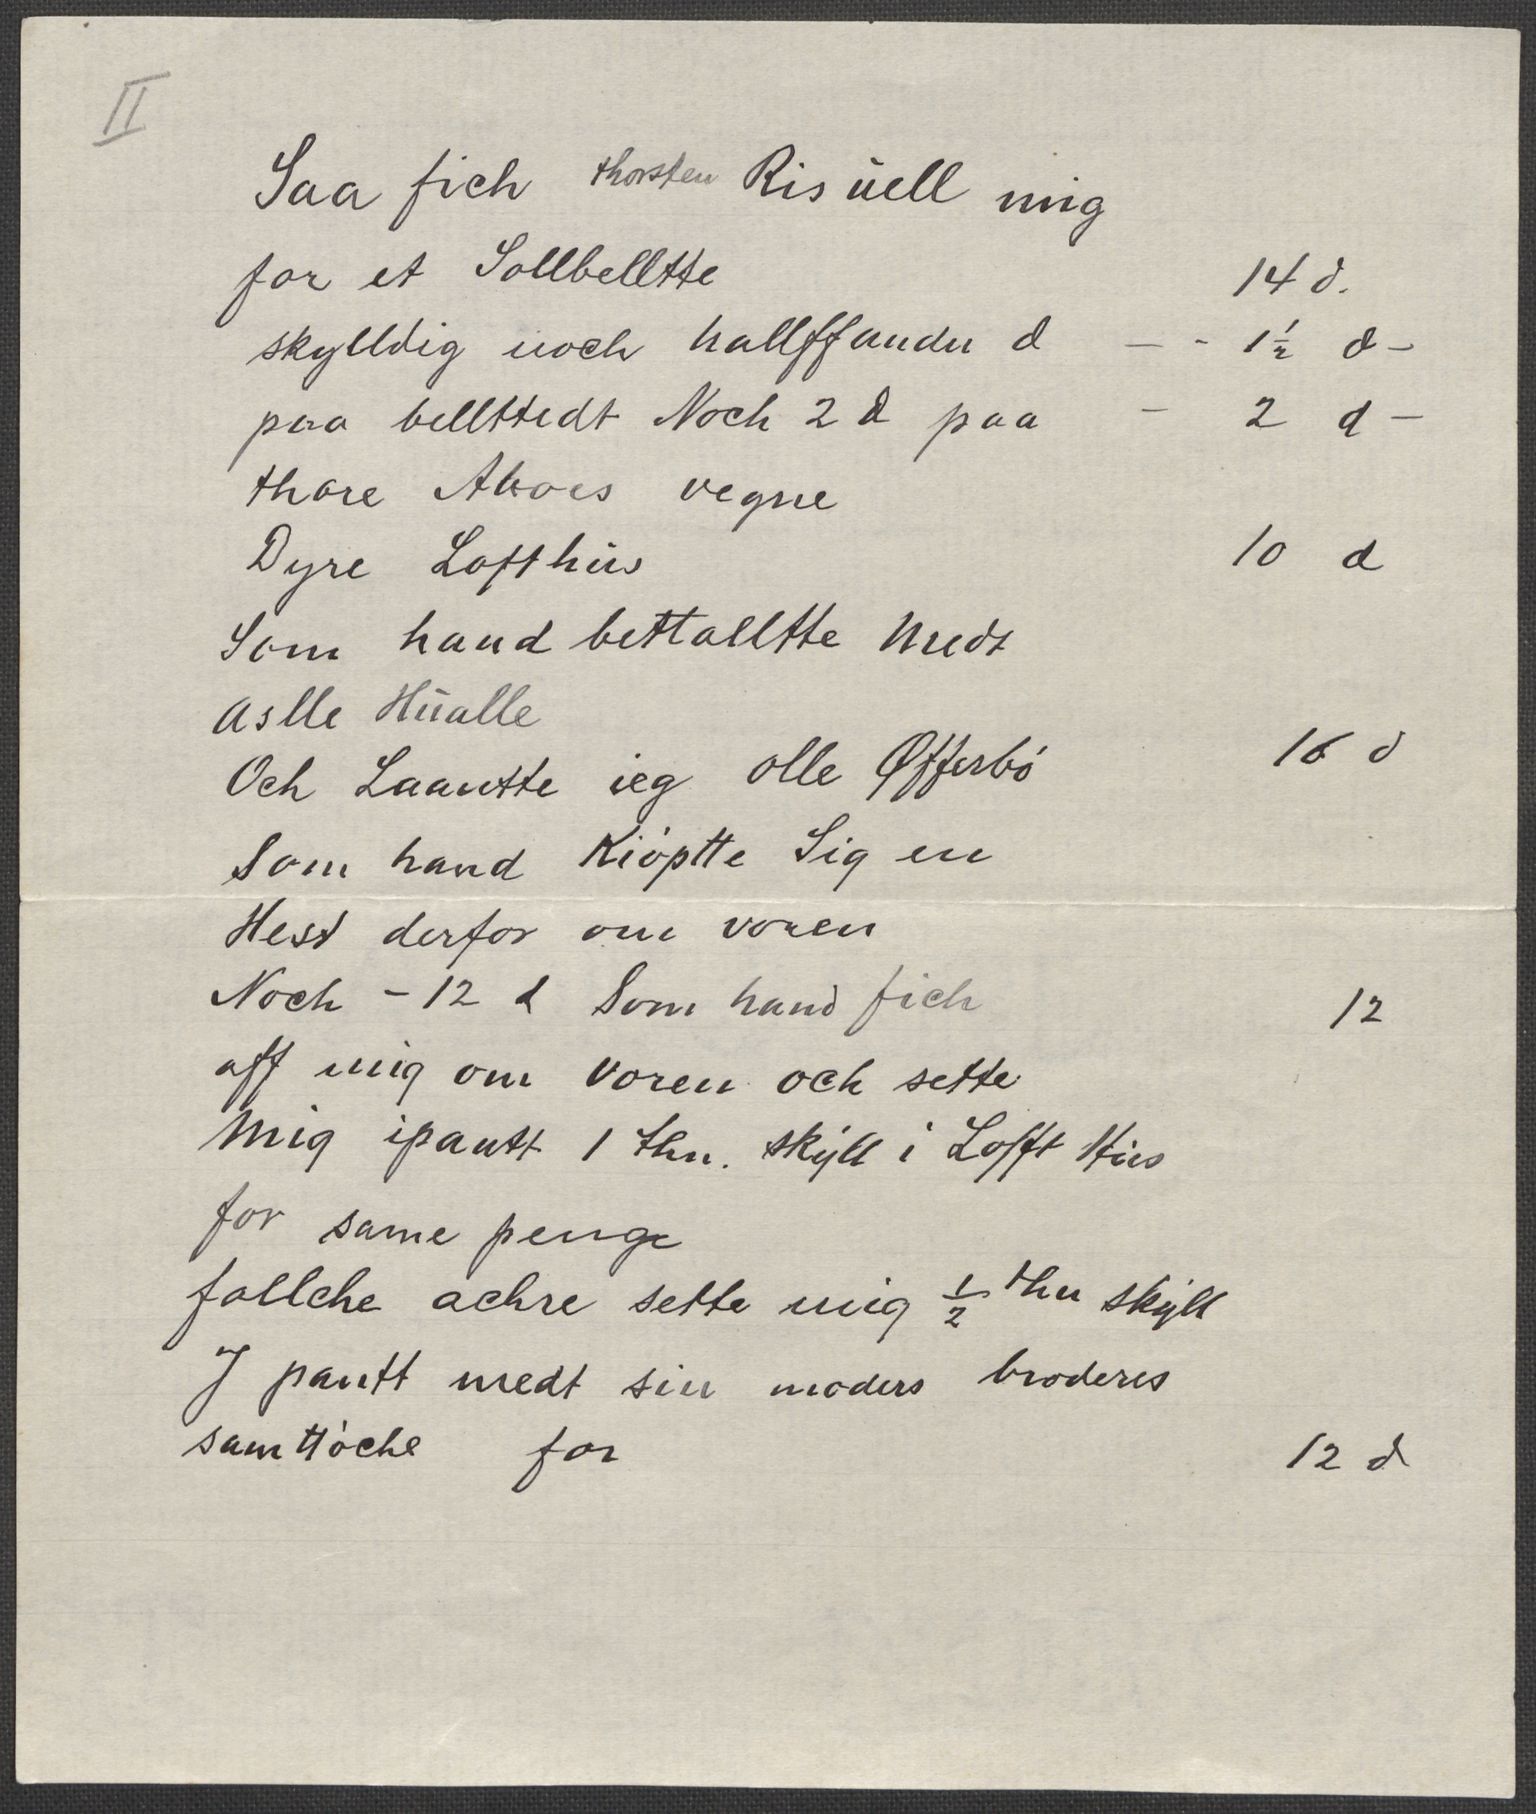 II
Saa fich thorsten Ris üell mig
for et Sollbelltte 14 d.
skylldig noch hallffandn d — - 1½ d —
paa bellttedt Noch 2 d paa — 2 d —
thore Aboes vegne
Dyre Lofthüs 10 d
Som hand bettalltte medt
Aslle Hüalle
Och Laantte ieg olle Øfferbö 16 d
Som hand Kiöptte Sig en
Hest derfor om voren
Noch - 12 d Som hand fich 12
aff mig om voren och sette
mig ipantt 1 thn. skyll i Lofft Hüs
for same penge
follche achre sette mig ½ thn skyll
J pantt medt sin moders broderes
samttöche for 12 d